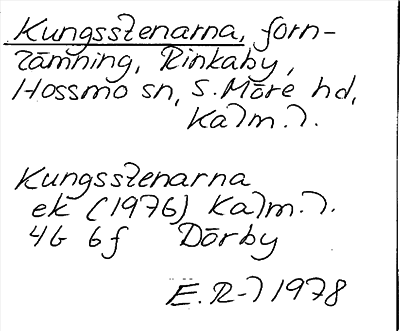 Kungsstenarna, forn-
lämning, Rinkaby,
Hossmo sn, S. Möre hd,
Kalm. l.
Kungsstenarna
ek (1976) Kalm. l.
4G 6f Dörby
E. R-l 1978